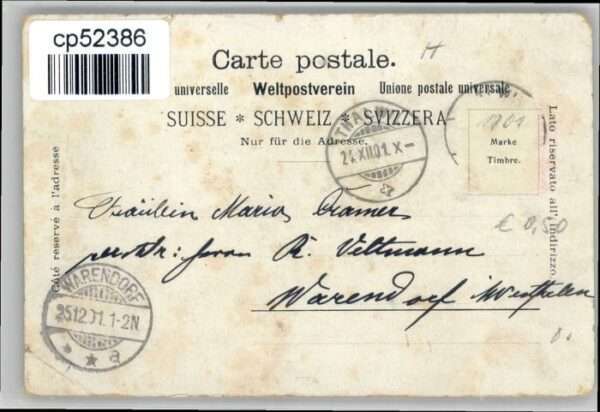 cp52386
Carte postale.
H
universelle Weltpostverein Unione postale universale
SUISSE * SCHWEIZ * SVIZZERA
Nur für die Adresse.
24.XII.01.X-
1901
Marke
Timbre.
Côté réservé à l'adresse
Lato riservato all'indirizzo.
€ 0,50
Fräulein Maria Cramer
Herrn R. Veltmann
Warendorf Westfalen
WARENDORF
25.12.01.1-2N
* * a